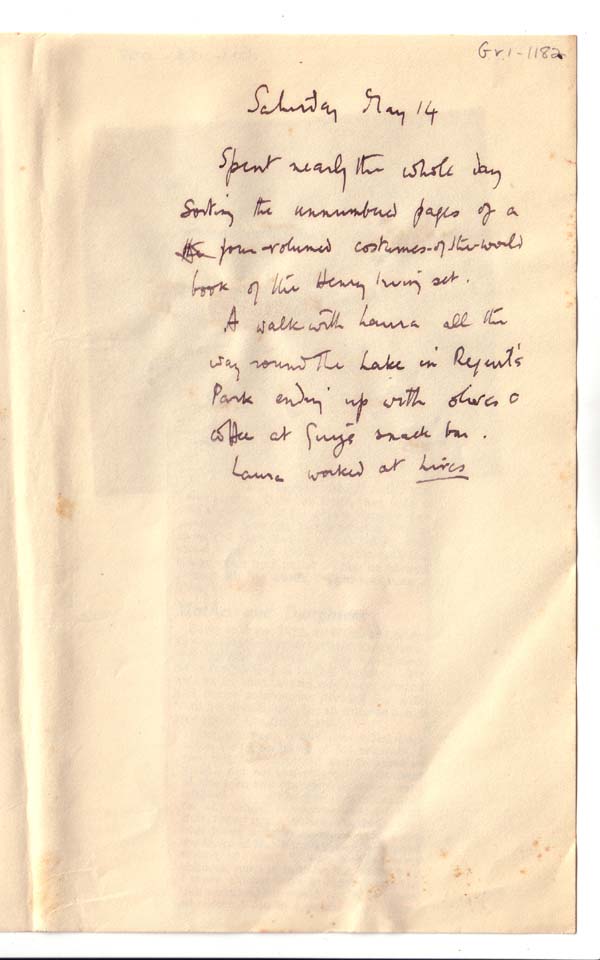 Gr1-1182
Saturday May 14
Spent nearly the whole day
Sorting the unnumbered pages of a
four-volumed costumes-of-the-world
book of the Henry Irving set.
A walk with Laura all the
way round the Lake in Regent's
Park ending up with olives &
coffee at Guy's snack bar.
Laura worked at Lives